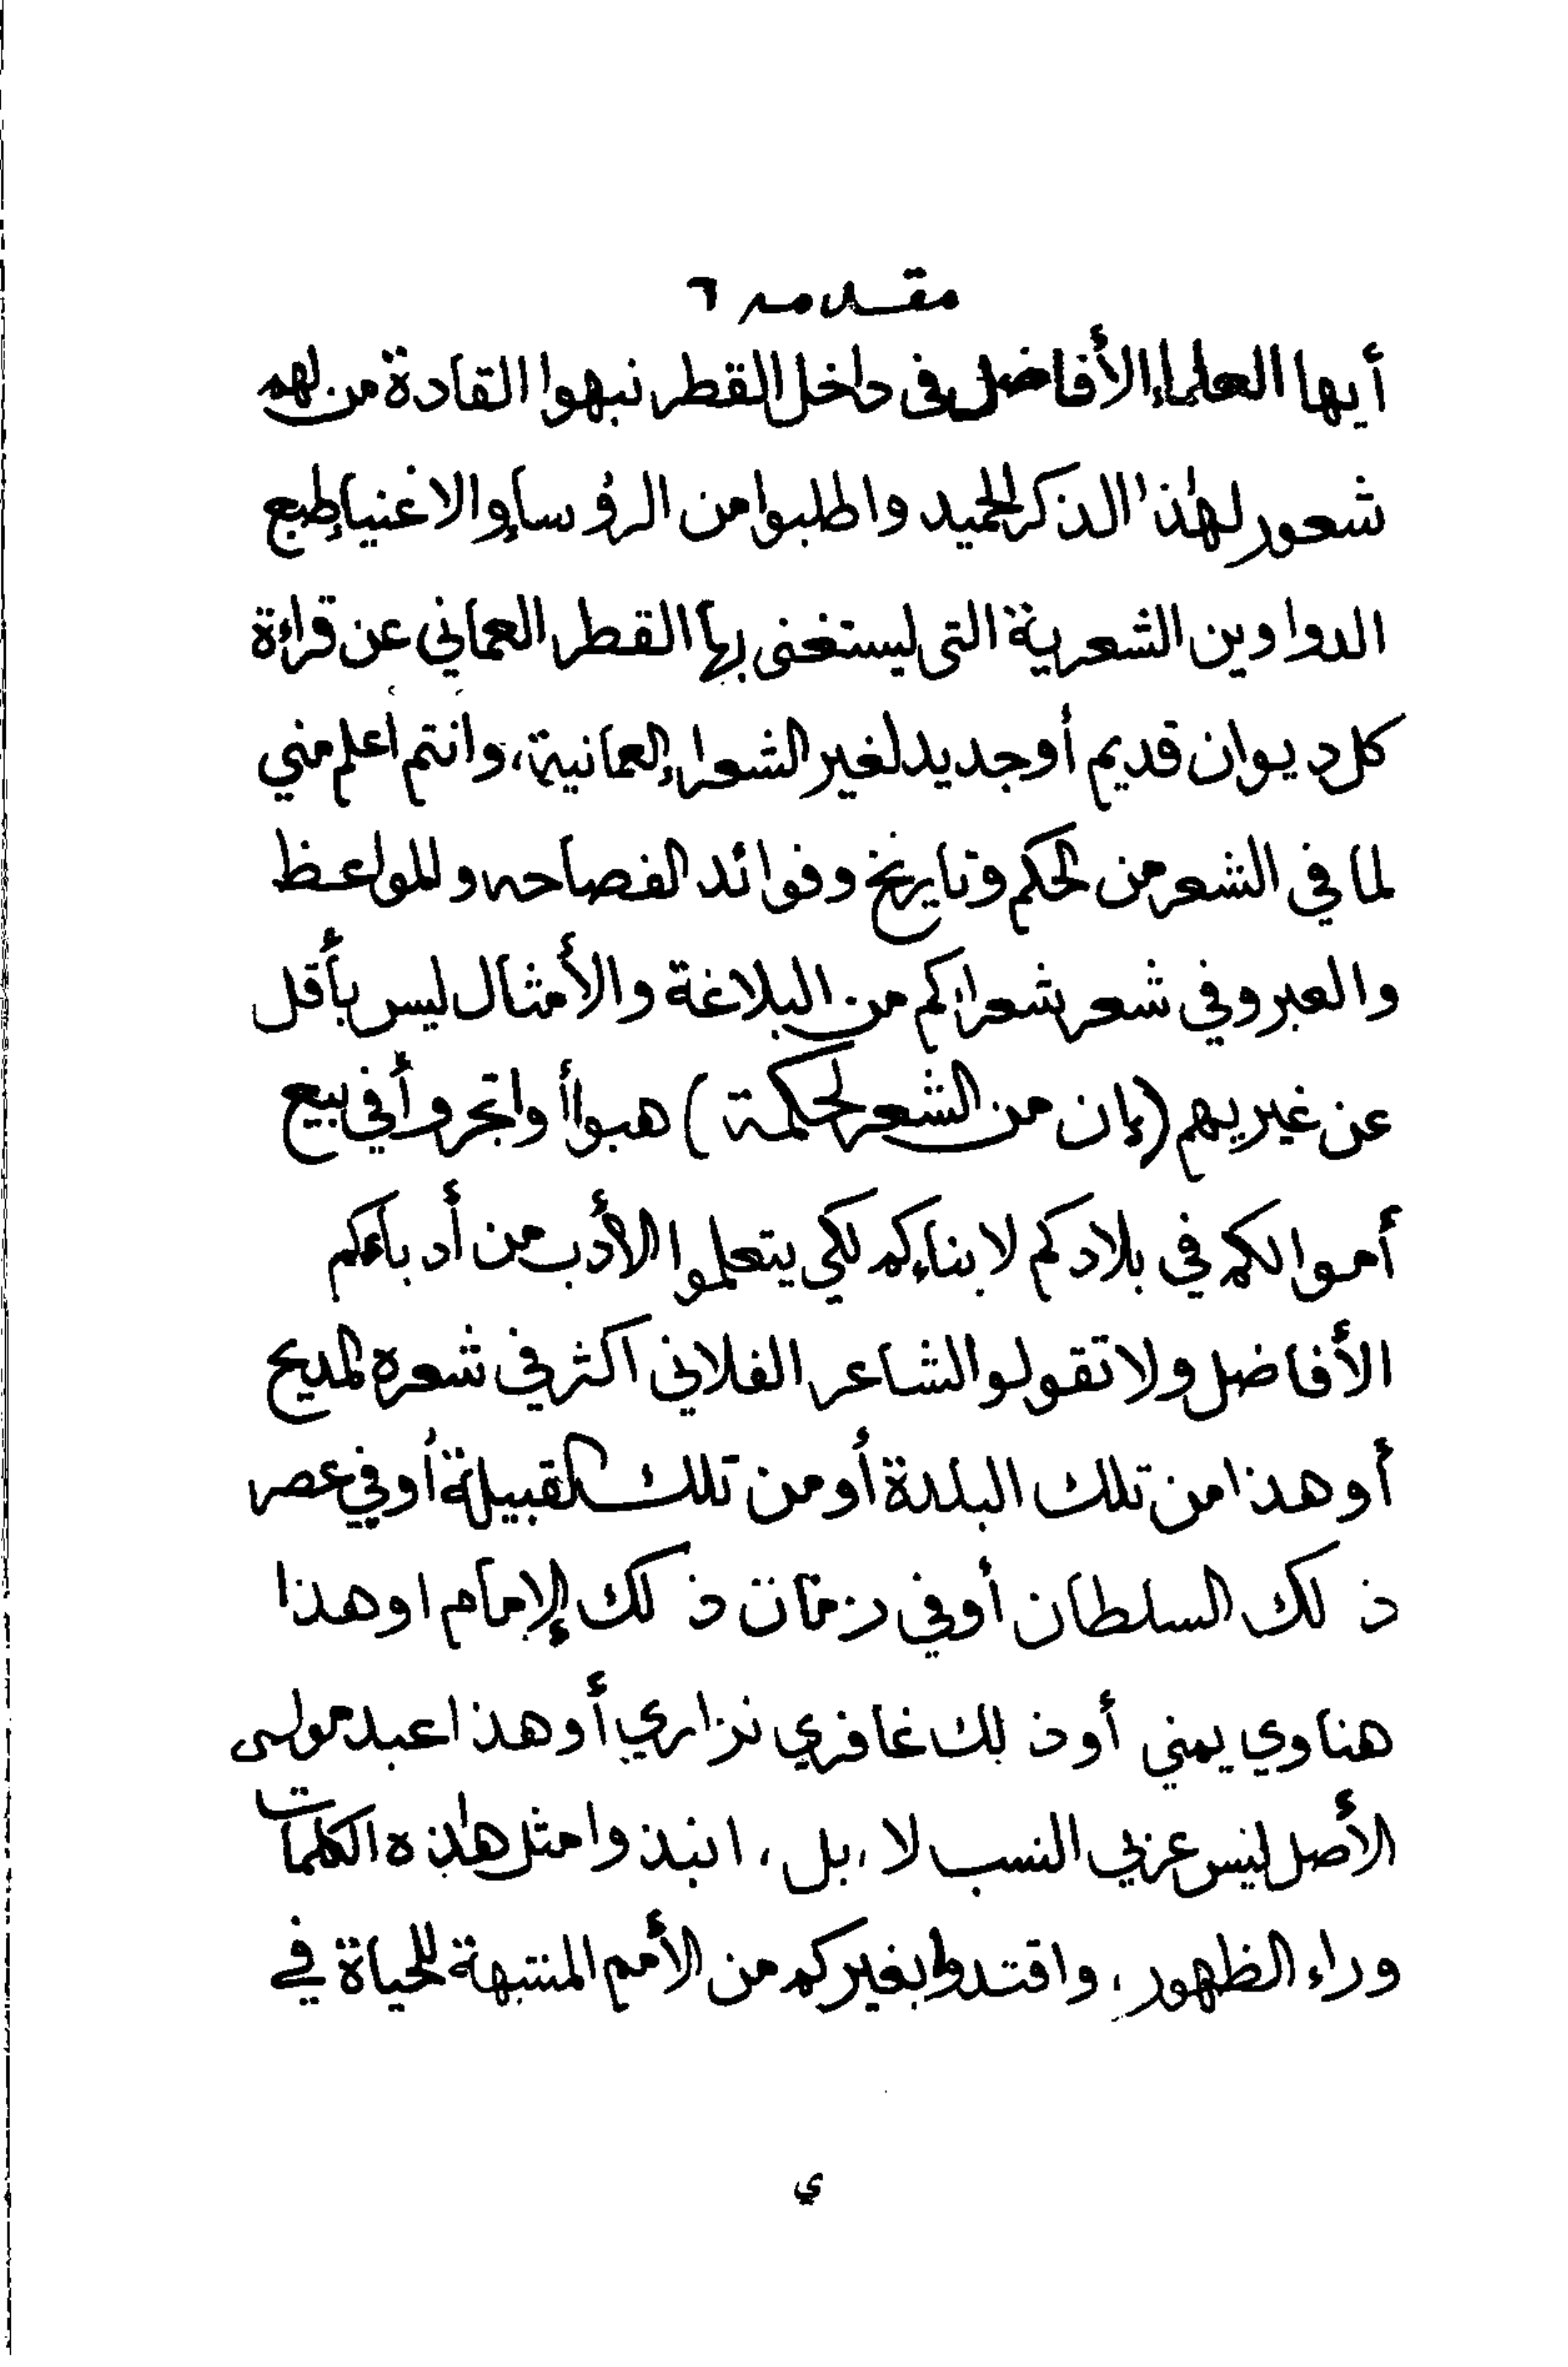 مقدمه ٦
أيها العلماء الأفاضل في داخل القطر نبهوا القادة من لهم
شعور لهذا الذكر الحميد واطلبوا من الرؤساء والاغنياء طبع
الدواوين الشعرية التي ليستغنى بها القطر العماني عن قراءة
كل ديوان قديم أو جديد لغير الشعراء العمانية، وأنتم أعلم مني
لما في الشعر من الحكم وتاريخ وفوائد الفصاحه والمواعظ
والعبر وفي شعر شعرائكم من البلاغة والأمثال ليس بأقل
عن غيريهم (إن من الشعر لحكمة) هبوا أواتجروا أفي بيع
أموالكم في بلادكم لابنائكم لكي يتعلموا الأدب من أدبائكم
الأفاضل ولا تقولو الشاعر الفلاني اكثر في شعره المديح
أو هذا من تلك البلدة أو من تلك القبيلة أو في عصر
ذلك السلطان أو في زمان ذلك الإمام او هذا
هناوي يمني أو ذلك غافري نزاري أو هذا عبد مولى
الأصل ليس عربي النسب لا، بل، انبذوا مثل هذه الكلمات
وراء الظهور، واقتدوا بغيركم من الأمم المنتبهة للحياة في
ي